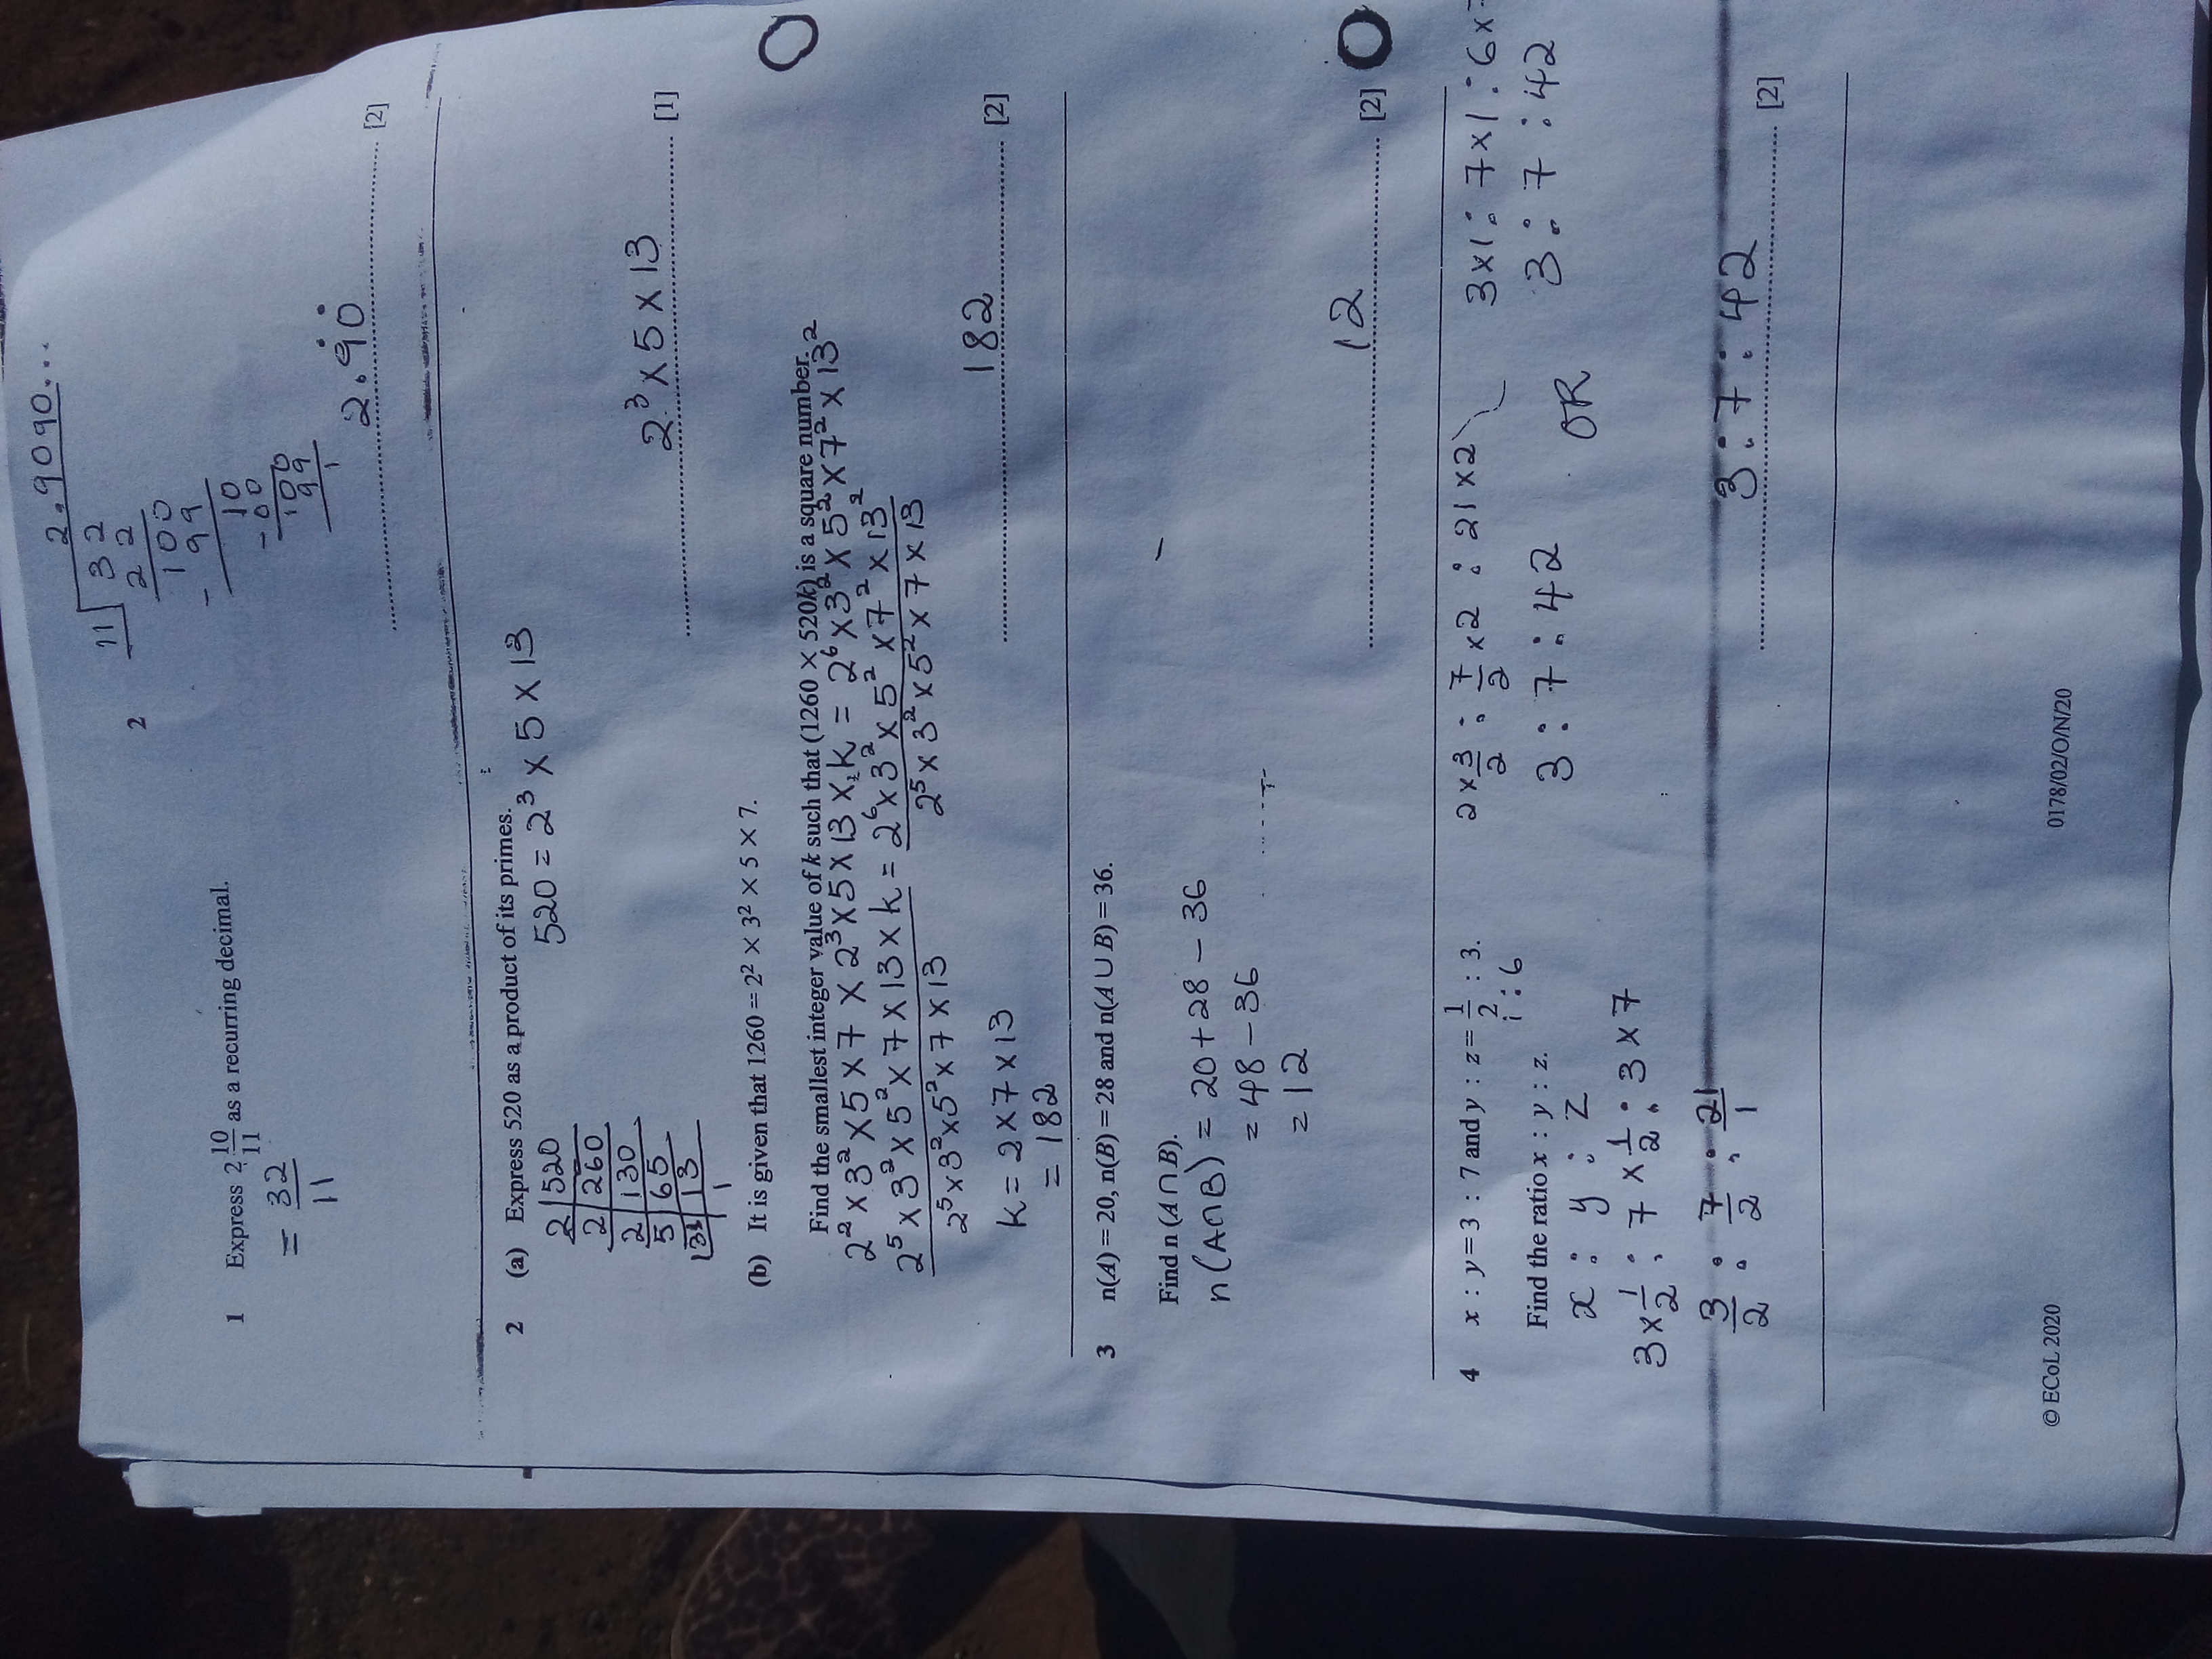 2
2.9090...
11 32
22
100
- 99
10
- 00
100
99
1
1 Express 2 10/11 as a recurring decimal.
= 32/11
2.9̇0̇ [2]
2 (a) Express 520 as a product of its primes.
520 = 2³ × 5 × 13
2 520
2 260
2 130
5 65
13 13
1
2³ × 5 × 13 [1]
(b) It is given that 1260 = 2² × 3² × 5 × 7.
Find the smallest integer value of k such that (1260 × 520k) is a square number.
2² × 3² × 5 × 7 × 2³ × 5 × 13 × k = 2⁶ × 3² × 5² × 7² × 13²
2⁵ × 3² × 5² × 7 × 13 × k = 2⁶ × 3² × 5² × 7² × 13²
2⁵ × 3² × 5² × 7 × 13 2⁵ × 3² × 5² × 7 × 13
k = 2 × 7 × 13
= 182
182 [2]
3 n(A) = 20, n(B) = 28 and n(A ∪ B) = 36.
Find n (A ∩ B).
n(A∩B) = 20 + 28 - 36
= 48 - 36
= 12
12 [2]
4 x : y = 3 : 7 and y : z = 1/2 : 3.
1 : 6
Find the ratio x : y : z.
x : y : z
3 × 1/2 : 7 × 1/2 : 3 × 7
3/2 : 7/2 : 21/1
2 × 3/2 : 7/2 × 2 : 21 × 2
3 : 7 : 42
OR
3×1 : 7×1 : 6×
3 : 7 : 42
3 : 7 : 42 [2]
© ECoL 2020
0178/02/O/N/20